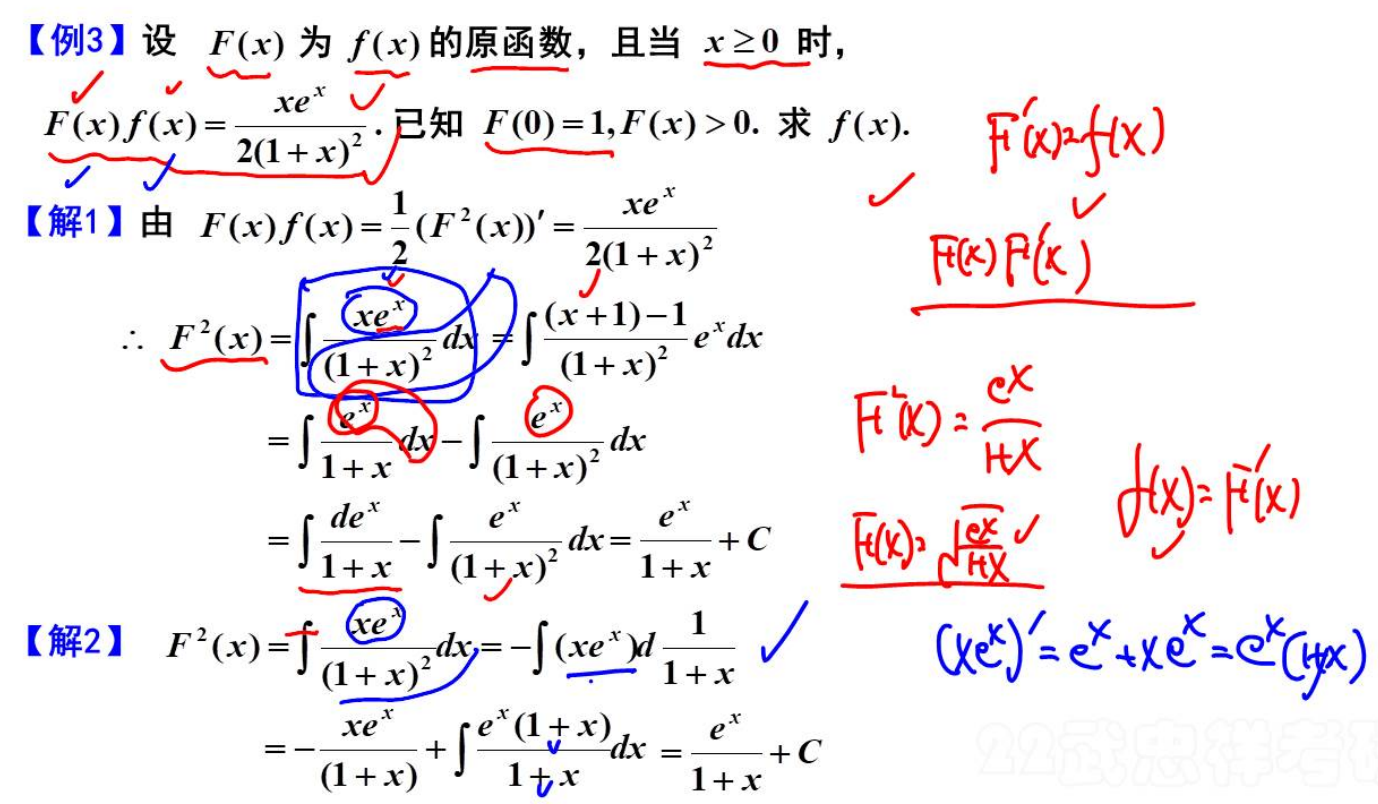 【例3】设 F(x) 为 f(x) 的原函数，且当 x≥0 时，
F(x)f(x) = \frac{xe^x}{2(1+x)^2}. 已知 F(0)=1, F(x)>0. 求 f(x).
F'(x)=f(x)
【解1】由 F(x)f(x) = \frac{1}{2}(F^2(x))' = \frac{xe^x}{2(1+x)^2}
F(x)F'(x)
∴ F^2(x) = ∫\frac{xe^x}{(1+x)^2}dx = ∫\frac{(x+1)-1}{(1+x)^2}e^x dx
= ∫\frac{e^x}{1+x}dx - ∫\frac{e^x}{(1+x)^2}dx
F^2(x) = \frac{e^x}{1+x}
f(x)=F'(x)
= ∫\frac{de^x}{1+x} - ∫\frac{e^x}{(1+x)^2}dx = \frac{e^x}{1+x} + C
F(x)=\sqrt{\frac{e^x}{1+x}}
【解2】 F^2(x) = ∫\frac{xe^x}{(1+x)^2}dx = -∫(xe^x)d\frac{1}{1+x}
(xe^x)' = e^x + xe^x = e^x(1+x)
= -\frac{xe^x}{(1+x)} + ∫\frac{e^x(1+x)}{1+x}dx = \frac{e^x}{1+x} + C
22武忠祥考研